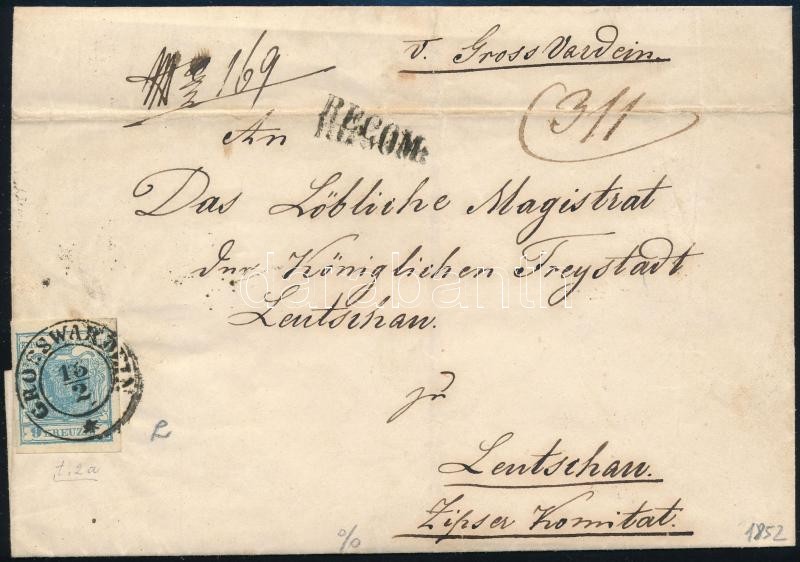 v. GrossVardein.
169
RECOM:
311
An
Das Löbliche Magistrat
der Königlichen Freystadt
Leutschau.
darabanth
GROSSWARDEIN
2
9 KREUZER
t. 2a
zu
Leutschau.
Zipser Komitat.
1852